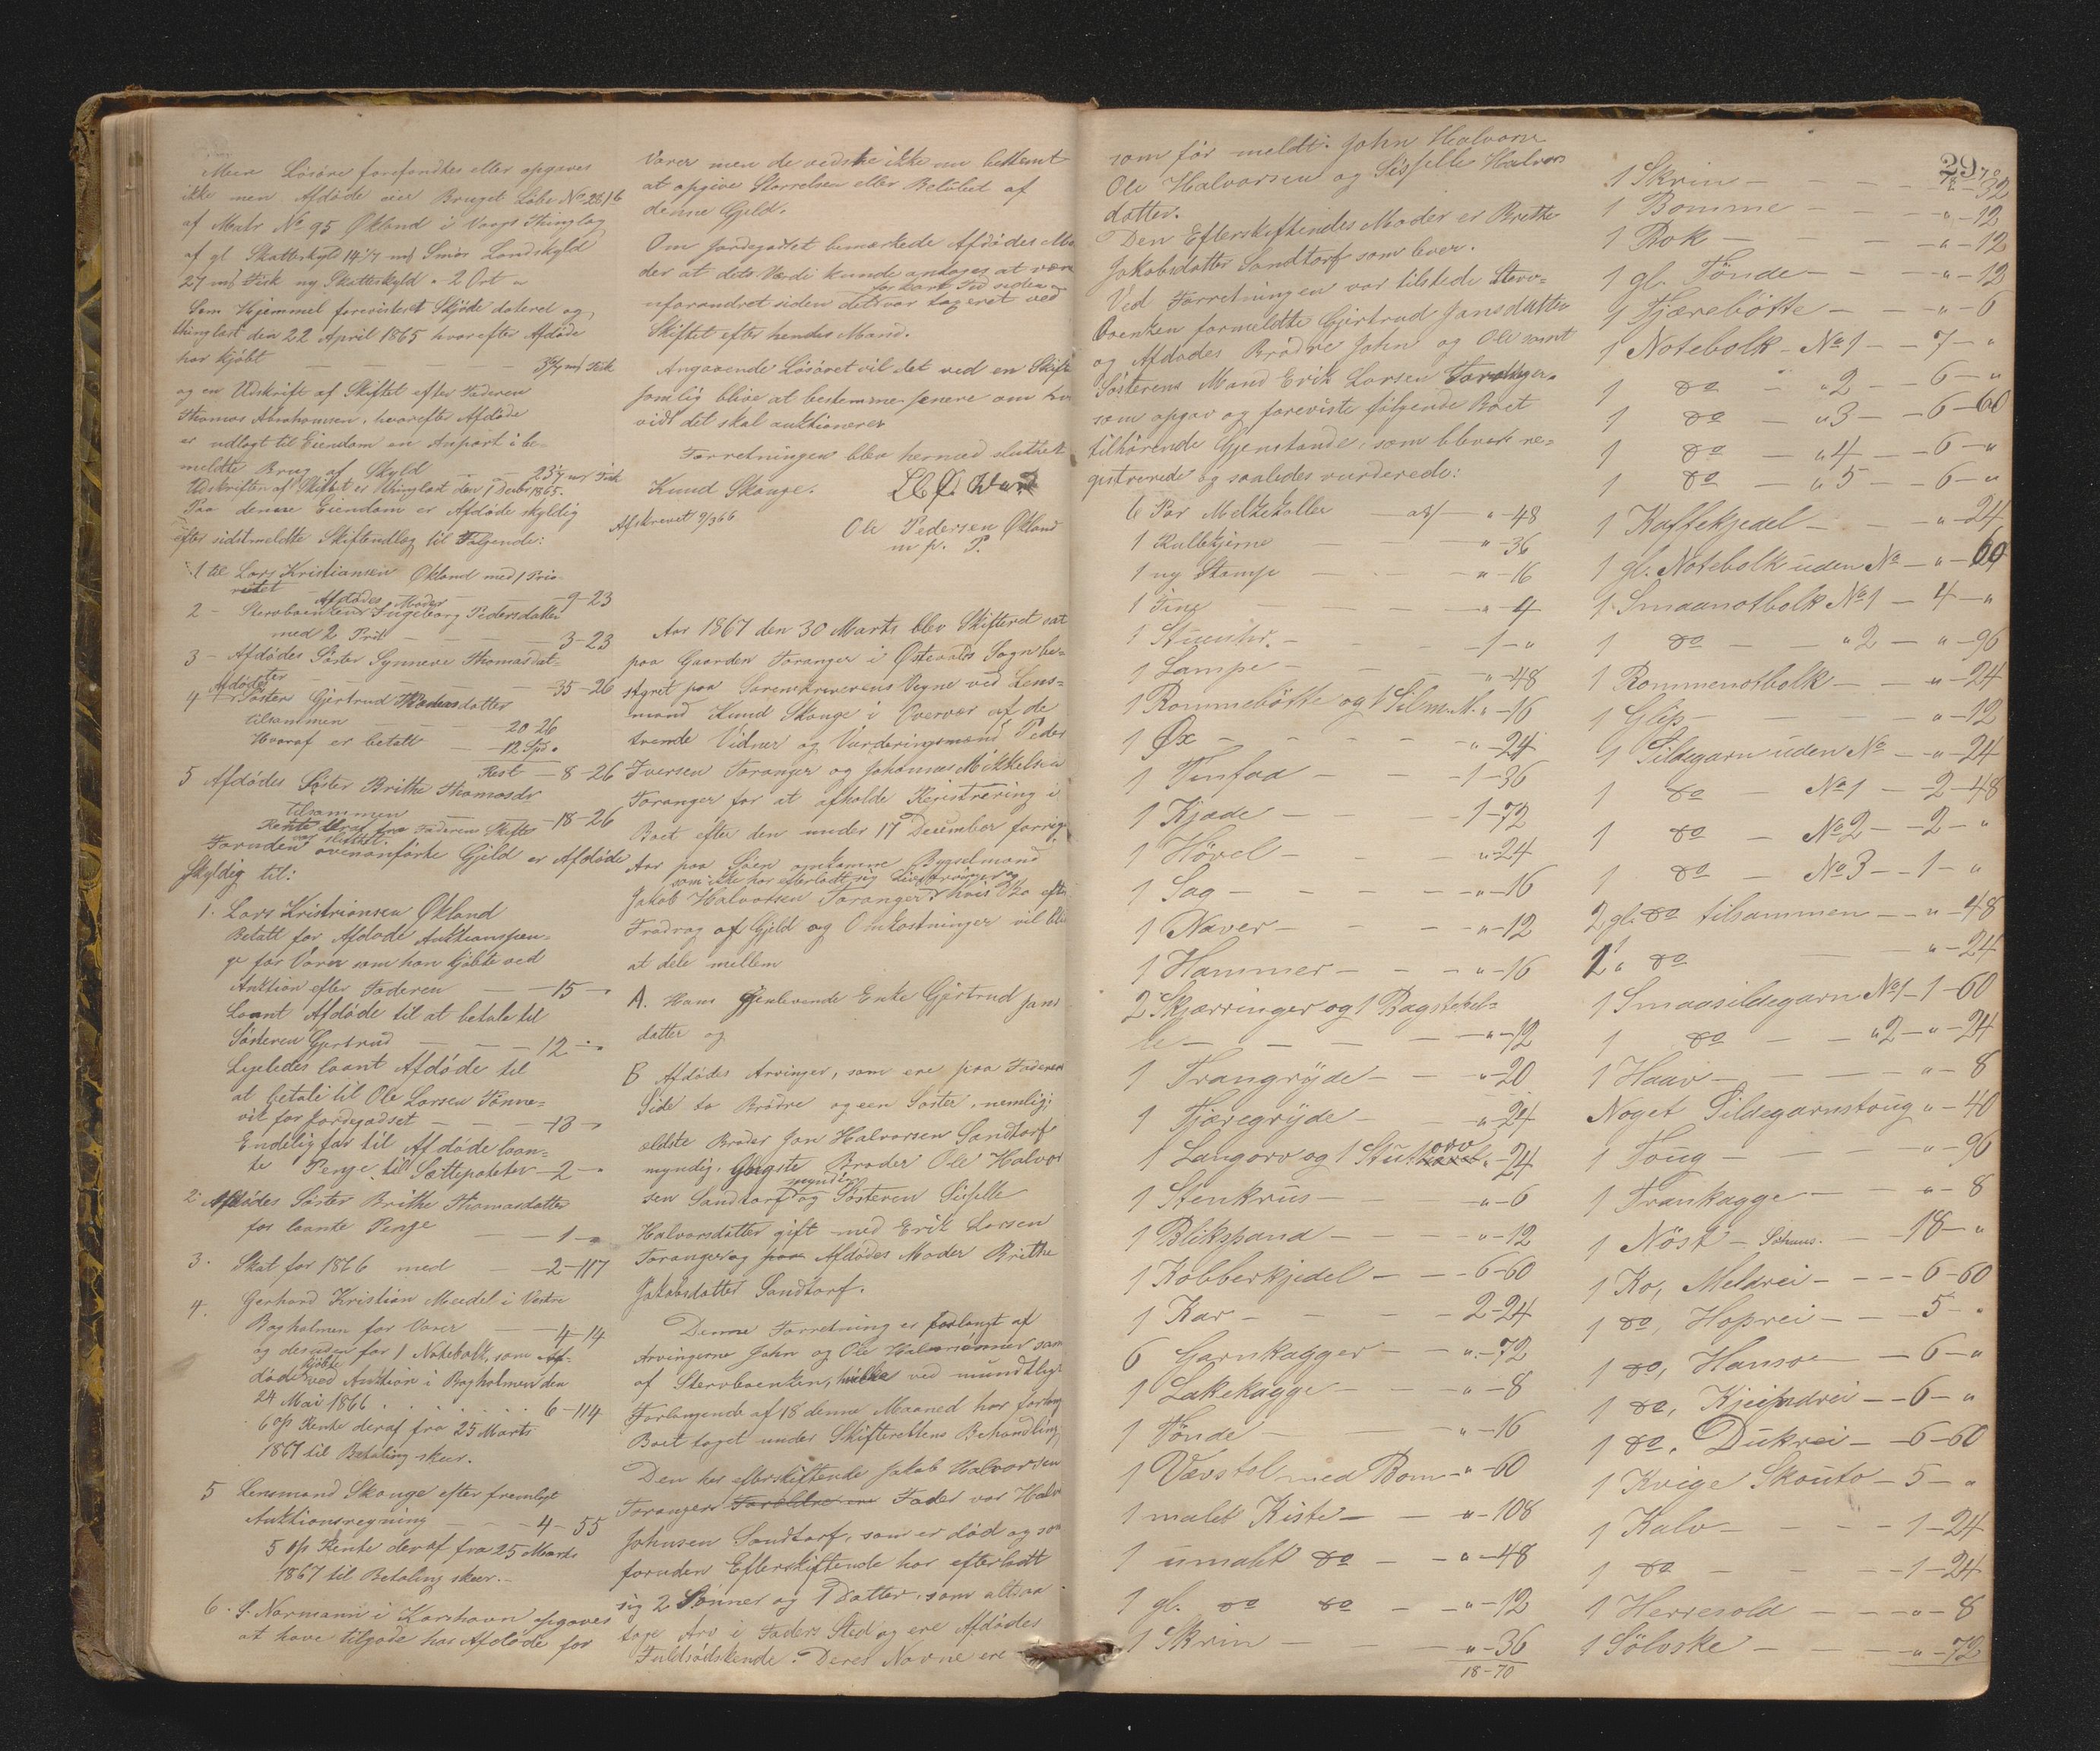 Mere Lösöre forefandtes eller opgaves
ikke men Afdöde eier Bruget Löbe No 281 b
af Matr No 95 Økland i Vaags Thinglag
af gl Skatteskyld 14 2/7 mk Smör Landskyld
27 mk Fisk ny Skatteskyld - 2 Ort -
Som Hjemmel forevistes Skjöde dateret og
thinglæst den 22 April 1865 hvorefter Afdöde
har kjöbt — — — mk Fisk
og en Udskrift af Skiftet efter Faderen
Thomas Abrahamsen, hvorefter Afdöde
er udlagt til Eiendom en Anpart i be-
meldte Brug af Skyld — — mk Fisk
Udskriften af Skiftet er thinglæst den 1 Decbr 1865.
Paa denne Eiendom er Afdöde skyldig
efter sidstmeldte Skifteudlæg til Fölgende:
1 til Lars Kristiansen Økland med 1 Prio-
ritet — — 9-23
2 - Stervboenken Afdödes Moder Ingeborg Pedersdatter
med 2 Prit — — 3-23
3 - Afdödes Söster Synneve Thomasdat-
ter — — 35-26
4 Afdödes Söster Gjertrud Thomasdatter
tilsammen — 20 26
Hvoraf er betalt — 12 Spd "
Rest — 8-26
5 Afdödes Söster Brithe Thomasdr
tilsammen — 18-26
Rente deraf fra Faderens Skifte
var sluttet.
Foruden ovenanförte Gjeld er Afdöde
skyldig til:
1. Lars Kristiansen Økland
Betalt for Afdöde Auktionspen-
ge for Varer som han kjöbte ved
Auktion efter Faderen — 15 - "
Laant Afdöde til at betale til
Söstren Gjertrud — — 12 - "
Ligeledes laant Afdöde til
at betale til Ole Larsen Tönne-
vik for Jordegodset — — 13 - "
Endelig far til Afdöde laan-
te Penge til Sættepoteter — 2 - "
2 Afdödes Söster Brithe Thomasdatter
for laante Penge — 1 - "
3. Skat for 1866 med — 2-117
4. Gerhard Kristian Meidel i Vestre
Bogholmen for Varer — 4-14
og desuden for 1 Notebolk, som Af-
döde kjöbte ved Auktion i Bogholmen den
24 Mai 1866 . . . . . 6-114
6 o/o Rente deraf fra 25 Marts
1867 til Betaling skeer.
5 Lensmand Skauge efter fremlagt
Auktionsregning — — 4-55
5 o/o Rente deraf fra 25 Marts
1867 til Betaling skeer.-
6. S. Normann i Karshavn opgaves
at have tilgode hos Afdöde for
Varer men de vidste ikke nu bestemt
at opgive Störrelsen eller Belöbet af
denne Gjeld.
Om Jordegodset bemærkede Afdödes Mo
der at dets Værdi kunde antages at være
uforandret siden det for kort Tid siden var taxeret ved
Skiftet efter hendes Mand.
Angaaende Lösöret vil det ved en Skifte
samling blive at bestemme senere om hvor
vidt det skal auktioneres
Forretningen blev hermed sluttet
Knud Skauge.
Afskrevet 9/3 66
Ole Pedersen Økland
m. p. P.
Aar 1867 den 30 Marts blev Skifteret sat
paa Gaarden Toranger i Østevold Sogn be-
styret paa Sorenskriverens Vegne ved Lens-
mand Knud Skauge i Overvær af de
tvende Vidner og Vurderingsmænd Peder
Iversen Toranger og Johannes Mikkelsen
Toranger for at afholde Registrering i
Boet efter den under 17 December forrige
Aar paa Söen omkomne Bygselmand
som ikke har efterladt sig Livsarvinger og
Jakob Halvorsen Toranger hvis Bo efter
Fradrag af Gjeld og Omkostninger vil blive
at dele mellem
A. Hans gjenlevende Enke Gjertrud Jans
datter og
B Afdödes Arvinger, som ere paa Faderens
Side to Brödre og een Söster, nemlig:
ældste Broder Jon Halvorsen Sandtorf
myndig, yngste Broder Ole Halvor
sen Sandtorf myndig og Sösteren Sisselle
Halvorsdatter gift med Erik Larsen
Toranger og paa Afdödes Moder Brithe
Jakobsdatter Sandtorf.
Denne Forretning er forlangt af
Arvingerne John og Ole Halvorsönner samt
af Stervboenken, hvilke ved mundtlige
Forlangende af 18 denne Maaned har forlangt
Boet taget under Skifterettens Behandling
Den her efterskiftende Jakob Halvorsen
Torangers Forældre ere Fader var Halvor
Johnsen Sandtorf, som er död og som
foruden Efterskiftende har efterladt
sig 2 Sönner og 1 Datter, som altsaa
tage Arv i Faders Sted og ere Afdödes
Fuldsödskende. Deres Navne ere
som för meldt: John Halvorsen
Ole Halvorsen og Sisselle Halvors
datter.
Den Efterskiftendes Moder er Brithe
Jakobsdatter Sandtorf som lever.
Ved Forretningen var tilstede Sterv-
boenken formeldte Gjertrud Jansdatter
og Afdödes Brödre John og Ole samt
Sösterens Mand Erik Larsen Toranger.
som opgav og foreviste fölgende Boet
tilhörende Gjenstande, som bleve re-
gistrerede og saaledes vurderede:
6 Par Melkekoller — " - 48
1 Rullekjerne — " - 36
1 ny Stamp — " - 16
1 Tine — " - 4
1 Stueuhr. — 1 - "
1 Lampe — " - 48
1 Rommebötte og 1 Sil m. M. " - 16
1 Øx — " - 24
1 Tinfad — 1-36
1 Kjæde — 1-72
1 Hövel — " - 24
1 Sag — " - 16
1 Naver — " - 12
1 Hammer — " - 16
2 Skjærringer og 1 Bagstehel-
le — " - 12
1 Trangryde — " - 20
1 Tjæregryde — " - 24
1 Langorv og 1 Stutorv " - 24
1 Stenkrus — " - 6
1 Blikspand — " - 12
1 Kobberkjedel — 6-60
1 Kar — 2-24
6 Garnkagger — " - 72
1 Lakekagge — " - 8
1 Tönde — " - 16
1 Vævstol med Bom — " - 60
1 malet Kiste — " - 108
1 umalt do — " - 48
1 gl. do do — " - 12
1 Skrin — " - 36
18-70
29
1 Skrin — " - 32
1 Bomme — " - 12
1 Rok — " - 12
1 gl. Tönde — " - 12
1 Tjærebötte — " - 6
1 Notebolk - No 1 — 7 - "
1 do - " 2 — 6 - "
1 do - " 3 — 6-60
1 do - " 4 — 6 - "
1 do - " 5 — 6 - "
1 Kaffekjedel — " - 24
1 gl. Notebolk uden No — " - 60
1 Smaanotbolk No 1 — 4 - "
1 do — " 2 — " - 96
1 Rommenotbolk — " - 24
1 Glip — " - 12
1 Sildegarn uden No — " - 24
1 do — No 1 — 2-48
1 do — No 2 — 2 - "
1 do — No 3 — 1 - "
2 gl. do tilsammen — " - 48
1 " do — " - 24
1 Smaasildegarn No 1 - 1-60
1 do — " 2 - " - 24
1 Haav — " - 8
Noget Sildegarnstoug " - 40
1 Toug — " - 96
1 Trankagge — " - 8
1 Nöst - Söhuus. — 18 - "
1 Ko, Meldrei — 6-60
1 do, Hoprei — 5 - "
1 do, Hansoe — 6 - "
1 do, Kjeimdrei — 6 - "
1 do, Dukrei — 6-60
1 Kvige Skouto — 5 - "
1 Kalv — 1-24
1 do — 1-24
1 Herresold — " - 8
1 Sölvske — " - 72